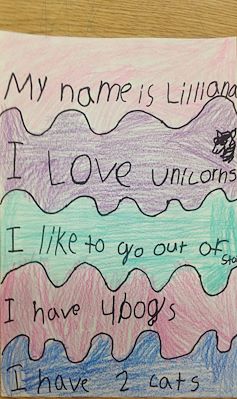 My name is Lilliana
I LOVE unicorns
I like to go out of sta
I have 4 Dogs
I have 2 cats